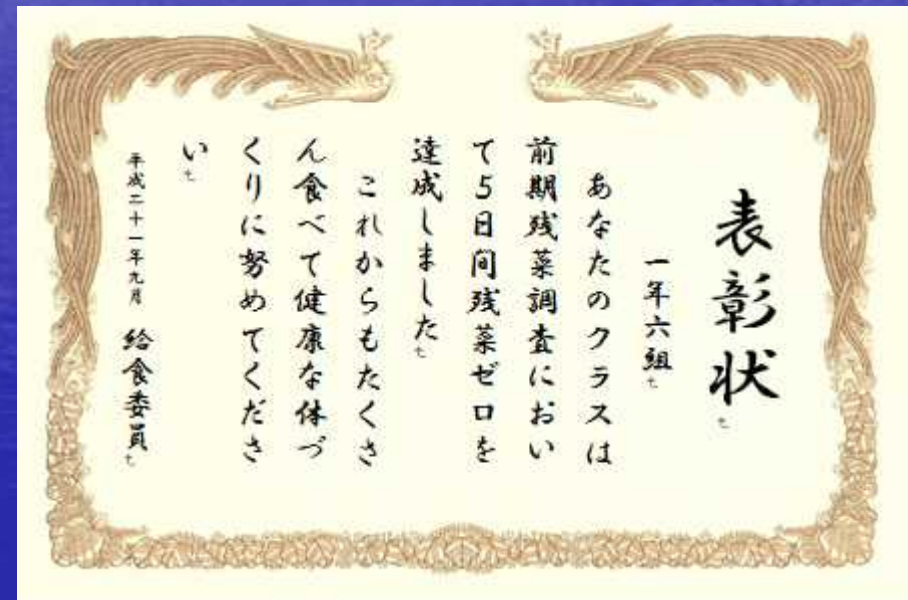 表彰状
一年六組
あなたのクラスは
前期残菜調査におい
て5日間残菜ゼロを
達成しました
これからもたくさ
ん食べて健康な体づ
くりに努めてくださ
い
平成二十一年九月 給食委員